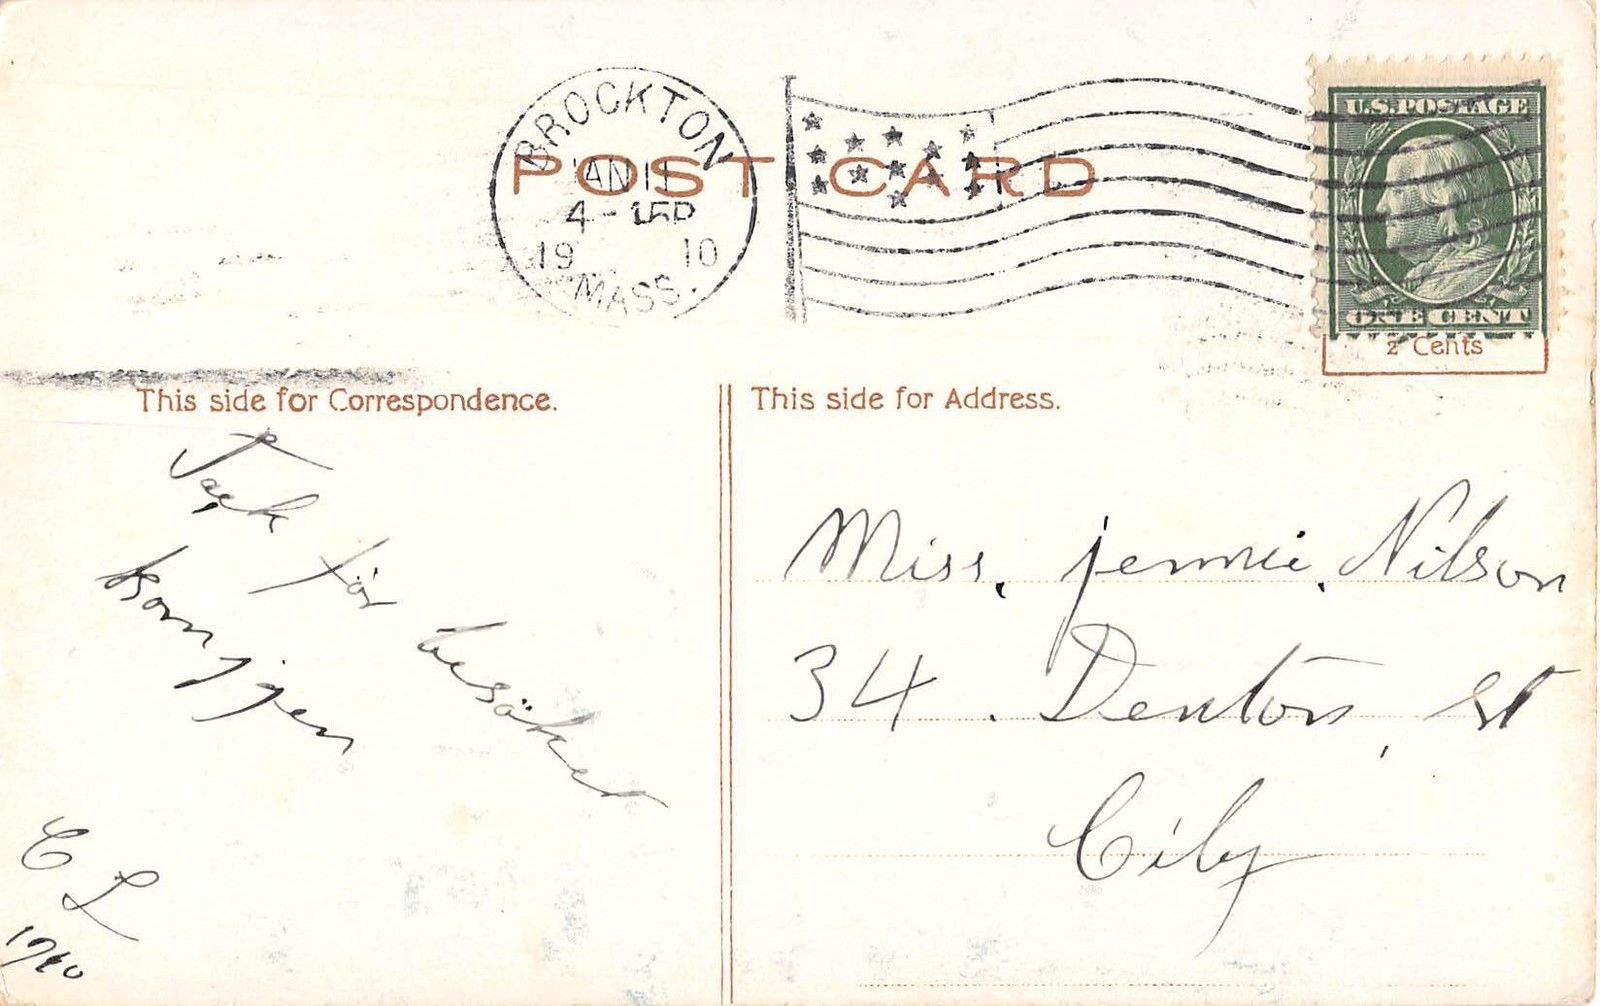 BROCKTON
JAN 11
4 - 15P
19 10
MASS.
POST CARD
U.S. POSTAGE
ONE CENT
2 Cents
This side for Correspondence.
This side for Address.
Tack för besöket
kom igen
C L
1910
Miss. Jennie. Nilson
34. Denton, St
City